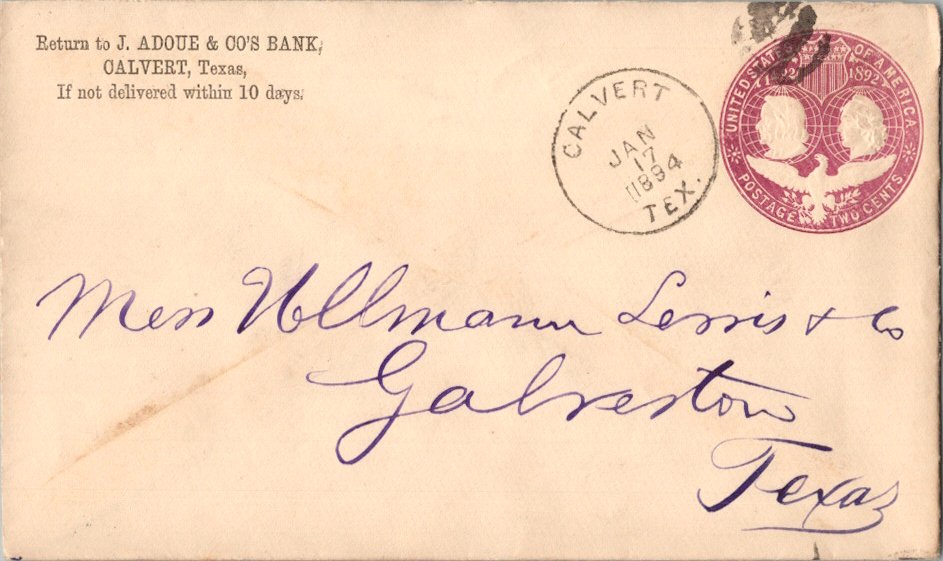 Return to J. ADOUE & CO'S BANK,
CALVERT, Texas,
If not delivered within 10 days.
CALVERT
JAN
17
1894
TEX.
UNITED STATES OF AMERICA
1492 1892
POSTAGE TWO CENTS
Mess Ullmann Lewis & Co
Galveston
Texas